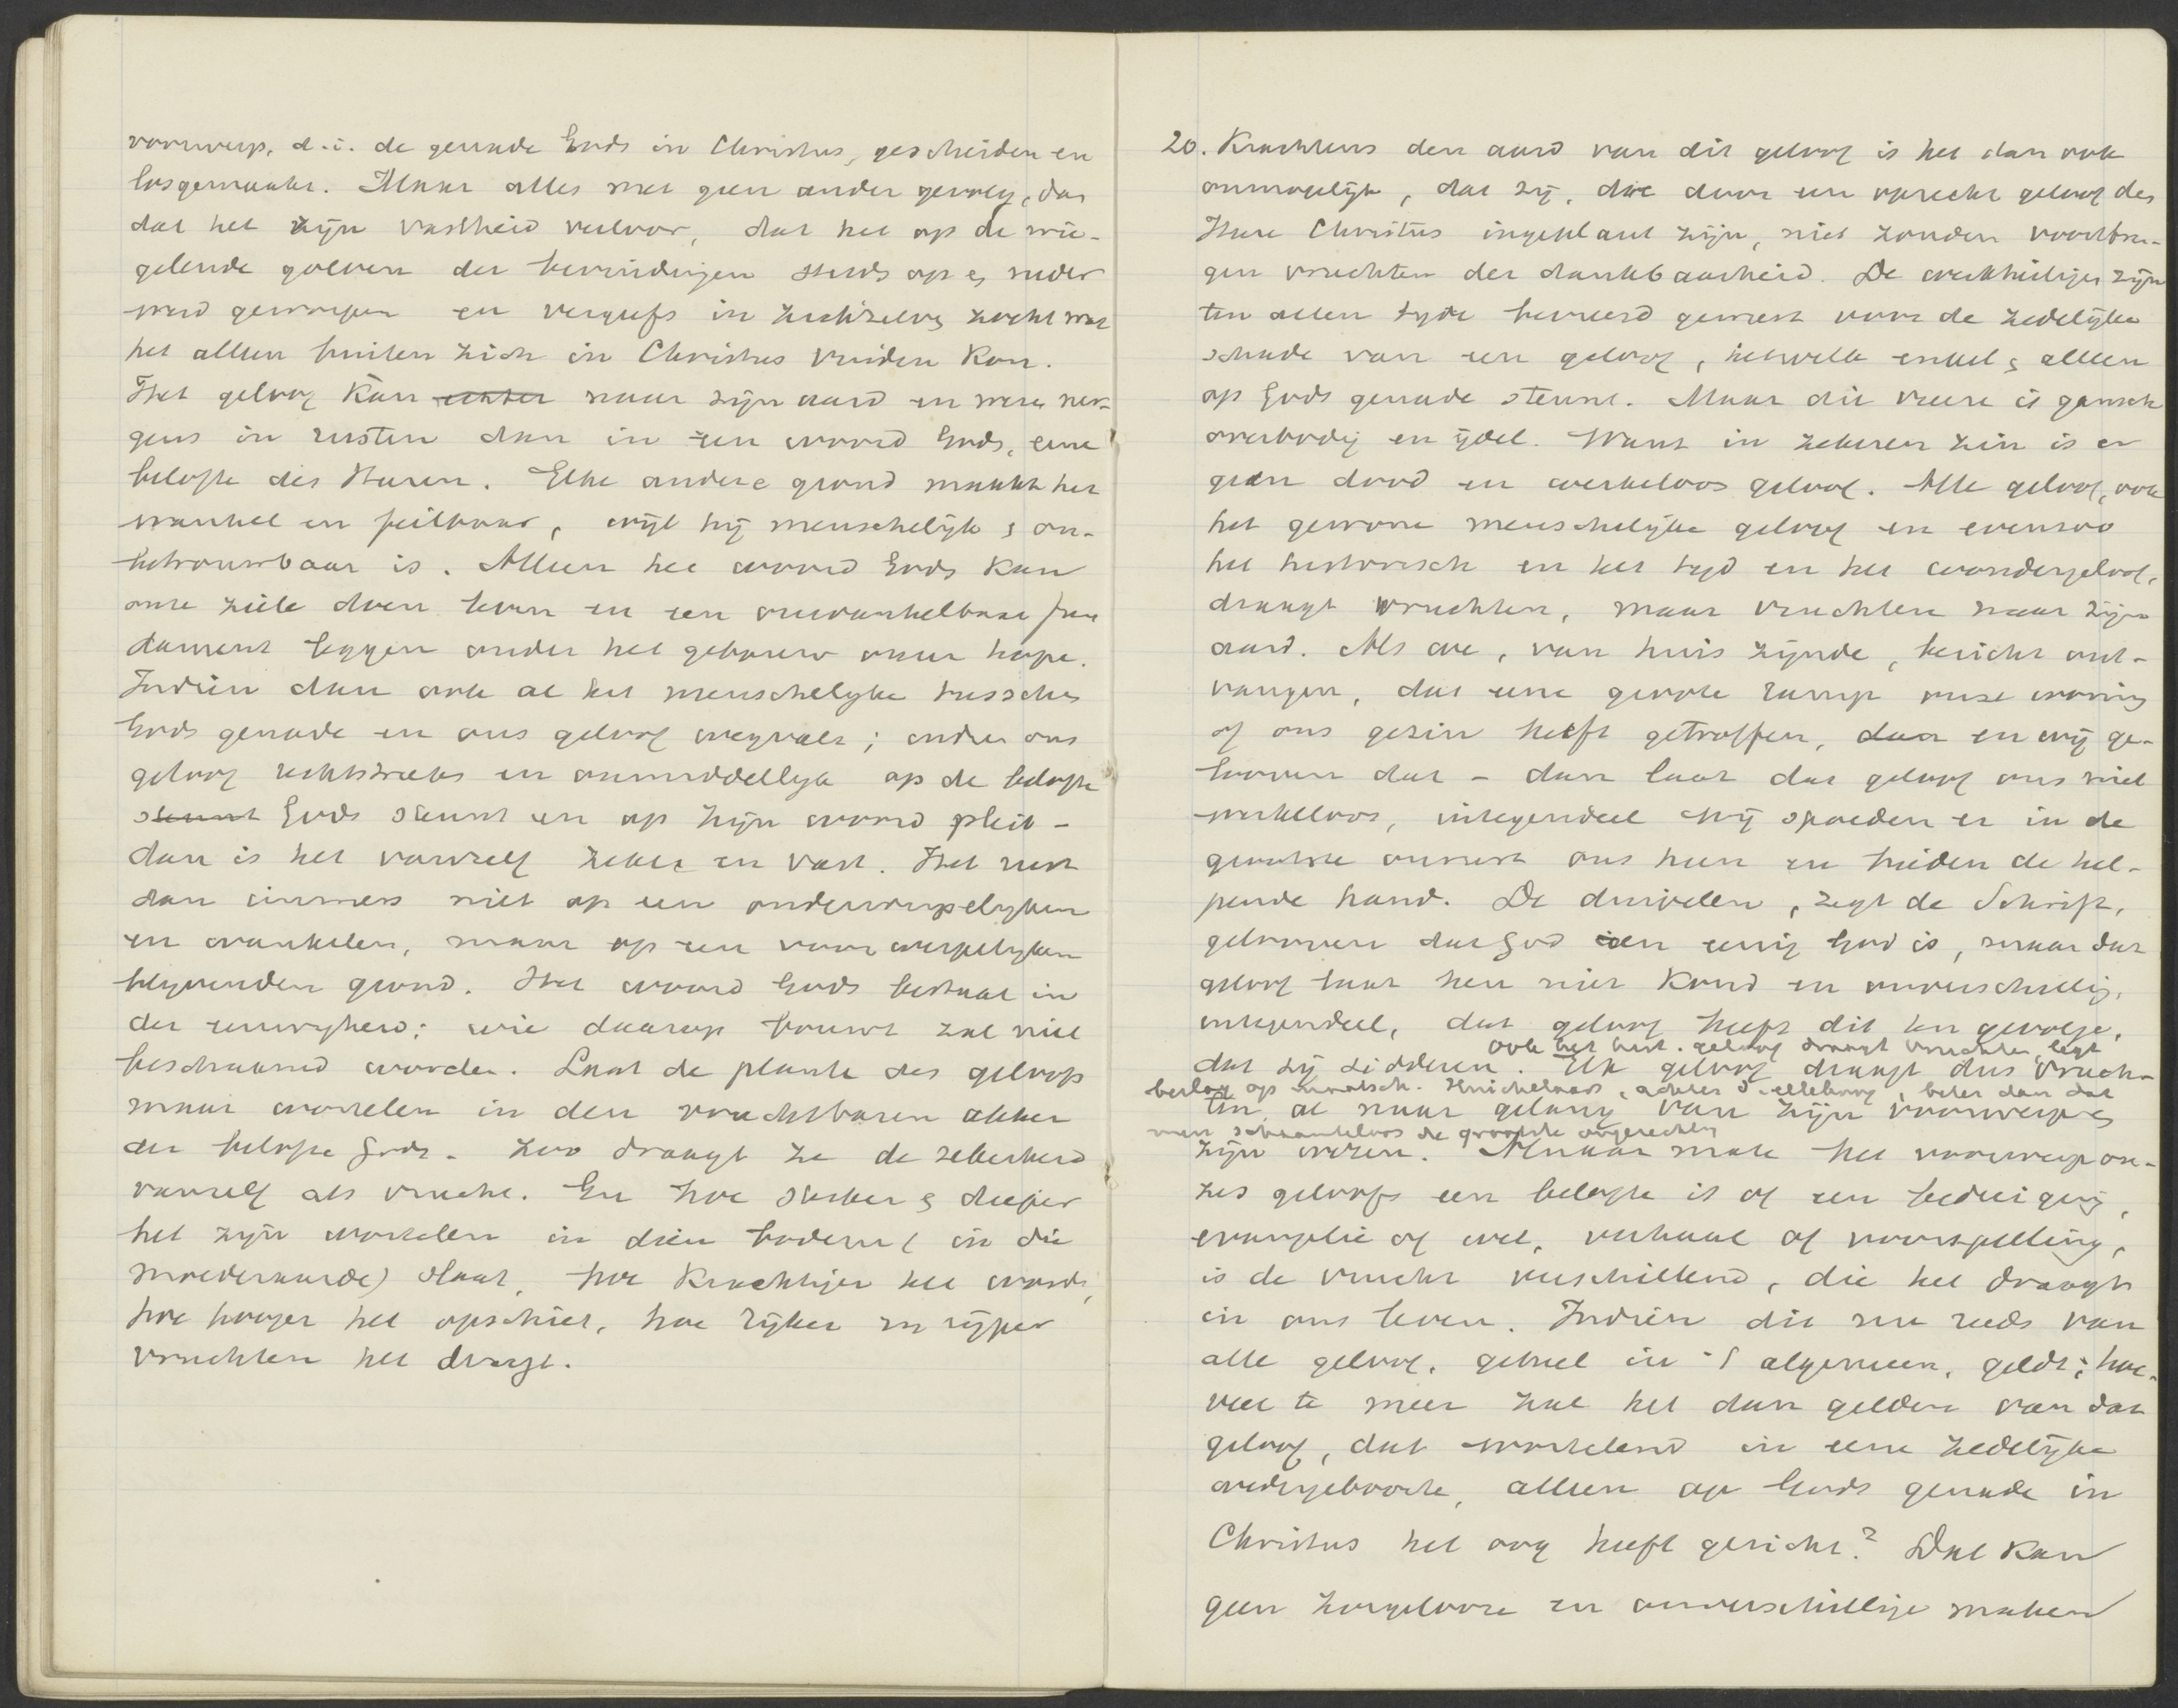 voorwerp, d.i. de genade Gods in Christus, gescheiden en
losgemaakt. Maar alles met geen ander gevolg, dan
dat het zijn vastheid verloor, dat het op de wie-
gelende golven der bevindingen steeds op & neder
werd geworpen en vergeefs in zichzelve zocht wat
het alleen buiten zich in Christus vinden kon.
Het geloof kan echter naar zijn aard en wezen ner-
gens in rusten dan in een woord Gods, eene
belofte des Heeren. Elke andere grond maakt het
wankel en feilbaar, wijl hij menschelijk & on-
betrouwbaar is. Alleen het woord Gods kan
onze ziele doen leven en een onwankelbaar fun
dament leggen onder het gebouw onzer hope.
Indien dan ook al het menschelijke tusschen
Gods genade en ons geloof wegvalt; indien ons
geloof rechtstreeks en onmiddellijk op de belofte
steunt Gods steunt en op zijn woord pleit -
dan is het vanzelf zeker en vast. Het rust
dan immers niet op een onderwerpelijken
en wankelen, maar op een voorwerpelijken
blijvenden grond. Het woord Gods bestaat in
der eeuwigheid; wie daarop bouwt zal niet
beschaamd worden. Laat de plante des geloofs
maar wortelen in den vruchtbaren akker
der belofte Gods. Zoo draagt ze de zekerheid
vanzelf als vrucht. En hoe sterker & dieper
het zijn wortelen in dien bodem (in die
moederaarde) slaat, hoe krachtiger het wordt,
hoe hooger het opschiet, hoe rijker en rijper
vruchten het draagt.
20. Krachtens den aard van dit geloof is het dan ook
onmogelijk, dat zij, die door een oprecht geloof des
Heere Christus ingeplant zijn, niet zouden voortbren-
gen vruchten der dankbaarheid. De werkheiligen zijn
ten allen tijde bevreesd geweest voor de zedelijke
schade van een geloof, hetwelk enkel & alleen
op Gods genade steunt. Maar die vreeze is gansch
overbodig en ijdel. Want in zekeren zin is er
geen dood en werkeloos geloof. Alle geloof, ook
het gewone menschelijke geloof en evenzoo
het historisch en het tijd en het wondergeloof,
draagt vruchten, maar vruchten naar zijn
aard. Als we, van huis zijnde, bericht ont-
vangen, dat eene groote ramp onze woning
of ons gezin heeft getroffen, dan en wij ge-
looven dat - dan laat dat geloof ons niet
werkeloos, integendeel wij spoeden er in de
grootste onrust ons heen en bieden de hel-
pende hand. De duivelen, zegt de Schrift,
gelooven dat God een eenig God is, maar dat
geloof laat hen niet koud en onverschillig,
integendeel, dat geloof heeft dit ten gevolge,
ook het hist. geloof draagt vruchten, legt
dat zij sidderen. Elk geloof draagt dus vruch-
beslag op maatsch. Huichelaars, achter , beter dan dat
ten al naar gelang van zijn voorwerp &
men schaamteloos de grootste ongerechtigh
zijn wezen. Al naar mate het voorwerp on-
zes geloofs een belofte is of een bedreiging,
evangelie of wet, verhaal of voorspelling,
is de vrucht verschillend, die het draagt
in ons leven. Indien dit nu reeds van
alle geloof, geheel in 't algemeen, geldt; hoe-
veel te meer zal het dan gelden van dat
geloof, dat wortelend in eene zedelijke
wedergeboorte, alleen op Gods genade in
Christus het oog heeft gericht? Dat kan
geen zorgelooze en onverschillige maken